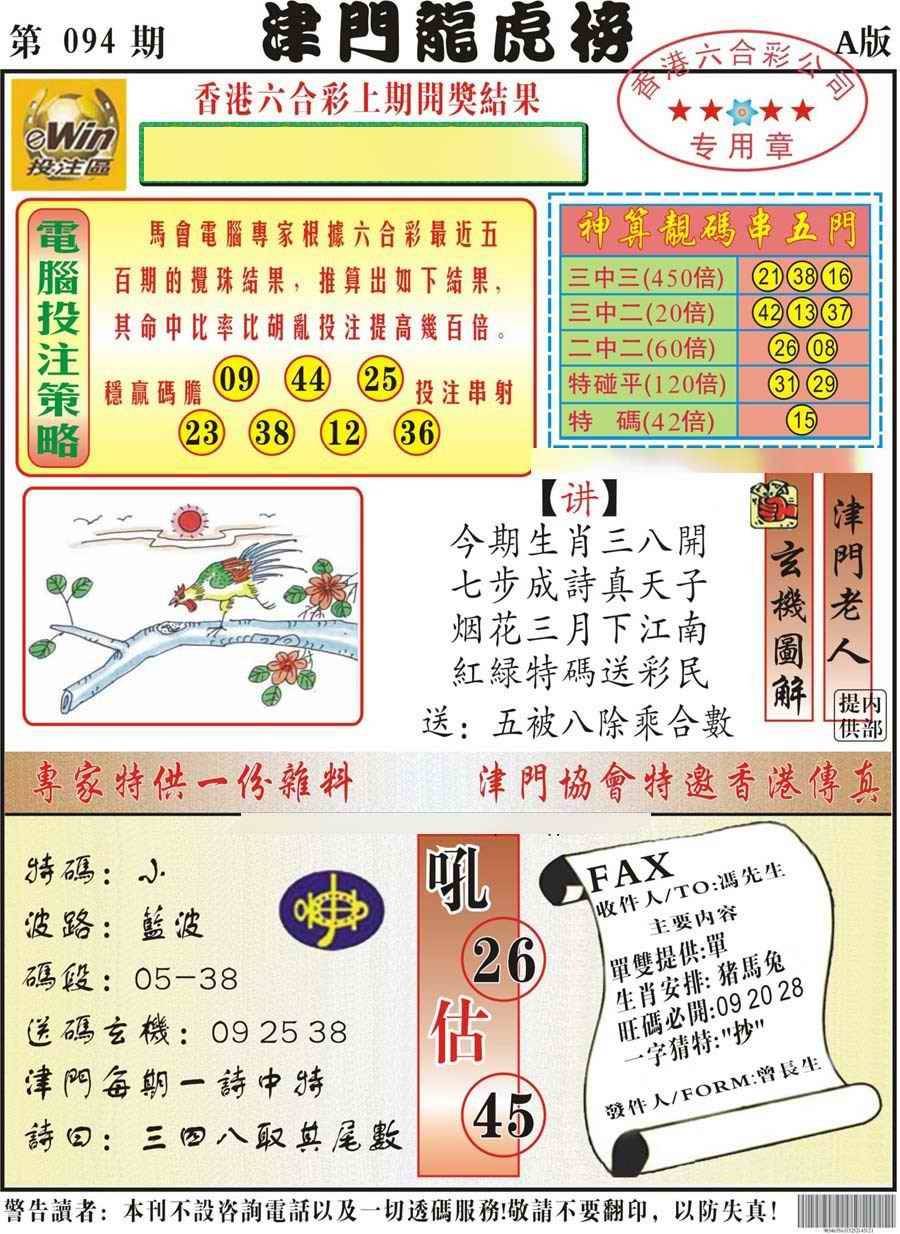 第 094 期
津門龍虎榜
A版
香港六合彩公司
专用章
eWin
投注區
香港六合彩上期開獎結果
電腦投注策略
馬會電腦專家根據六合彩最近五
百期的攪珠結果，推算出如下結果，
其命中比率比胡亂投注提高幾百倍。
穩贏碼膽 09 44 25 投注串射
23 38 12 36
神算靚碼串五門
三中三(450倍) 21 38 16
三中二(20倍) 42 13 37
二中二(60倍) 26 08
特碰平(120倍) 31 29
特 碼(42倍) 15
【讲】
今期生肖三八開
七步成詩真天子
烟花三月下江南
紅緑特碼送彩民
送：五被八除乘合數
玄機圖解
津門老人
内部
提供
專家特供一份雜料
津門協會特邀香港傳真
特碼：小
波路：藍波
碼段：05-38
送碼玄機：09 25 38
津門每期一詩中特
詩曰：三四八取其尾數
吼
26
估
45
FAX
收件人/TO:馮先生
主要内容
單雙提供:單
生肖安排: 猪馬兔
旺碼必開:09 20 28
一字猜特:"抄"
發件人/FORM:曾長生
警告讀者：本刊不設咨詢電話以及一切透碼服務!敬請不要翻印，以防失真！